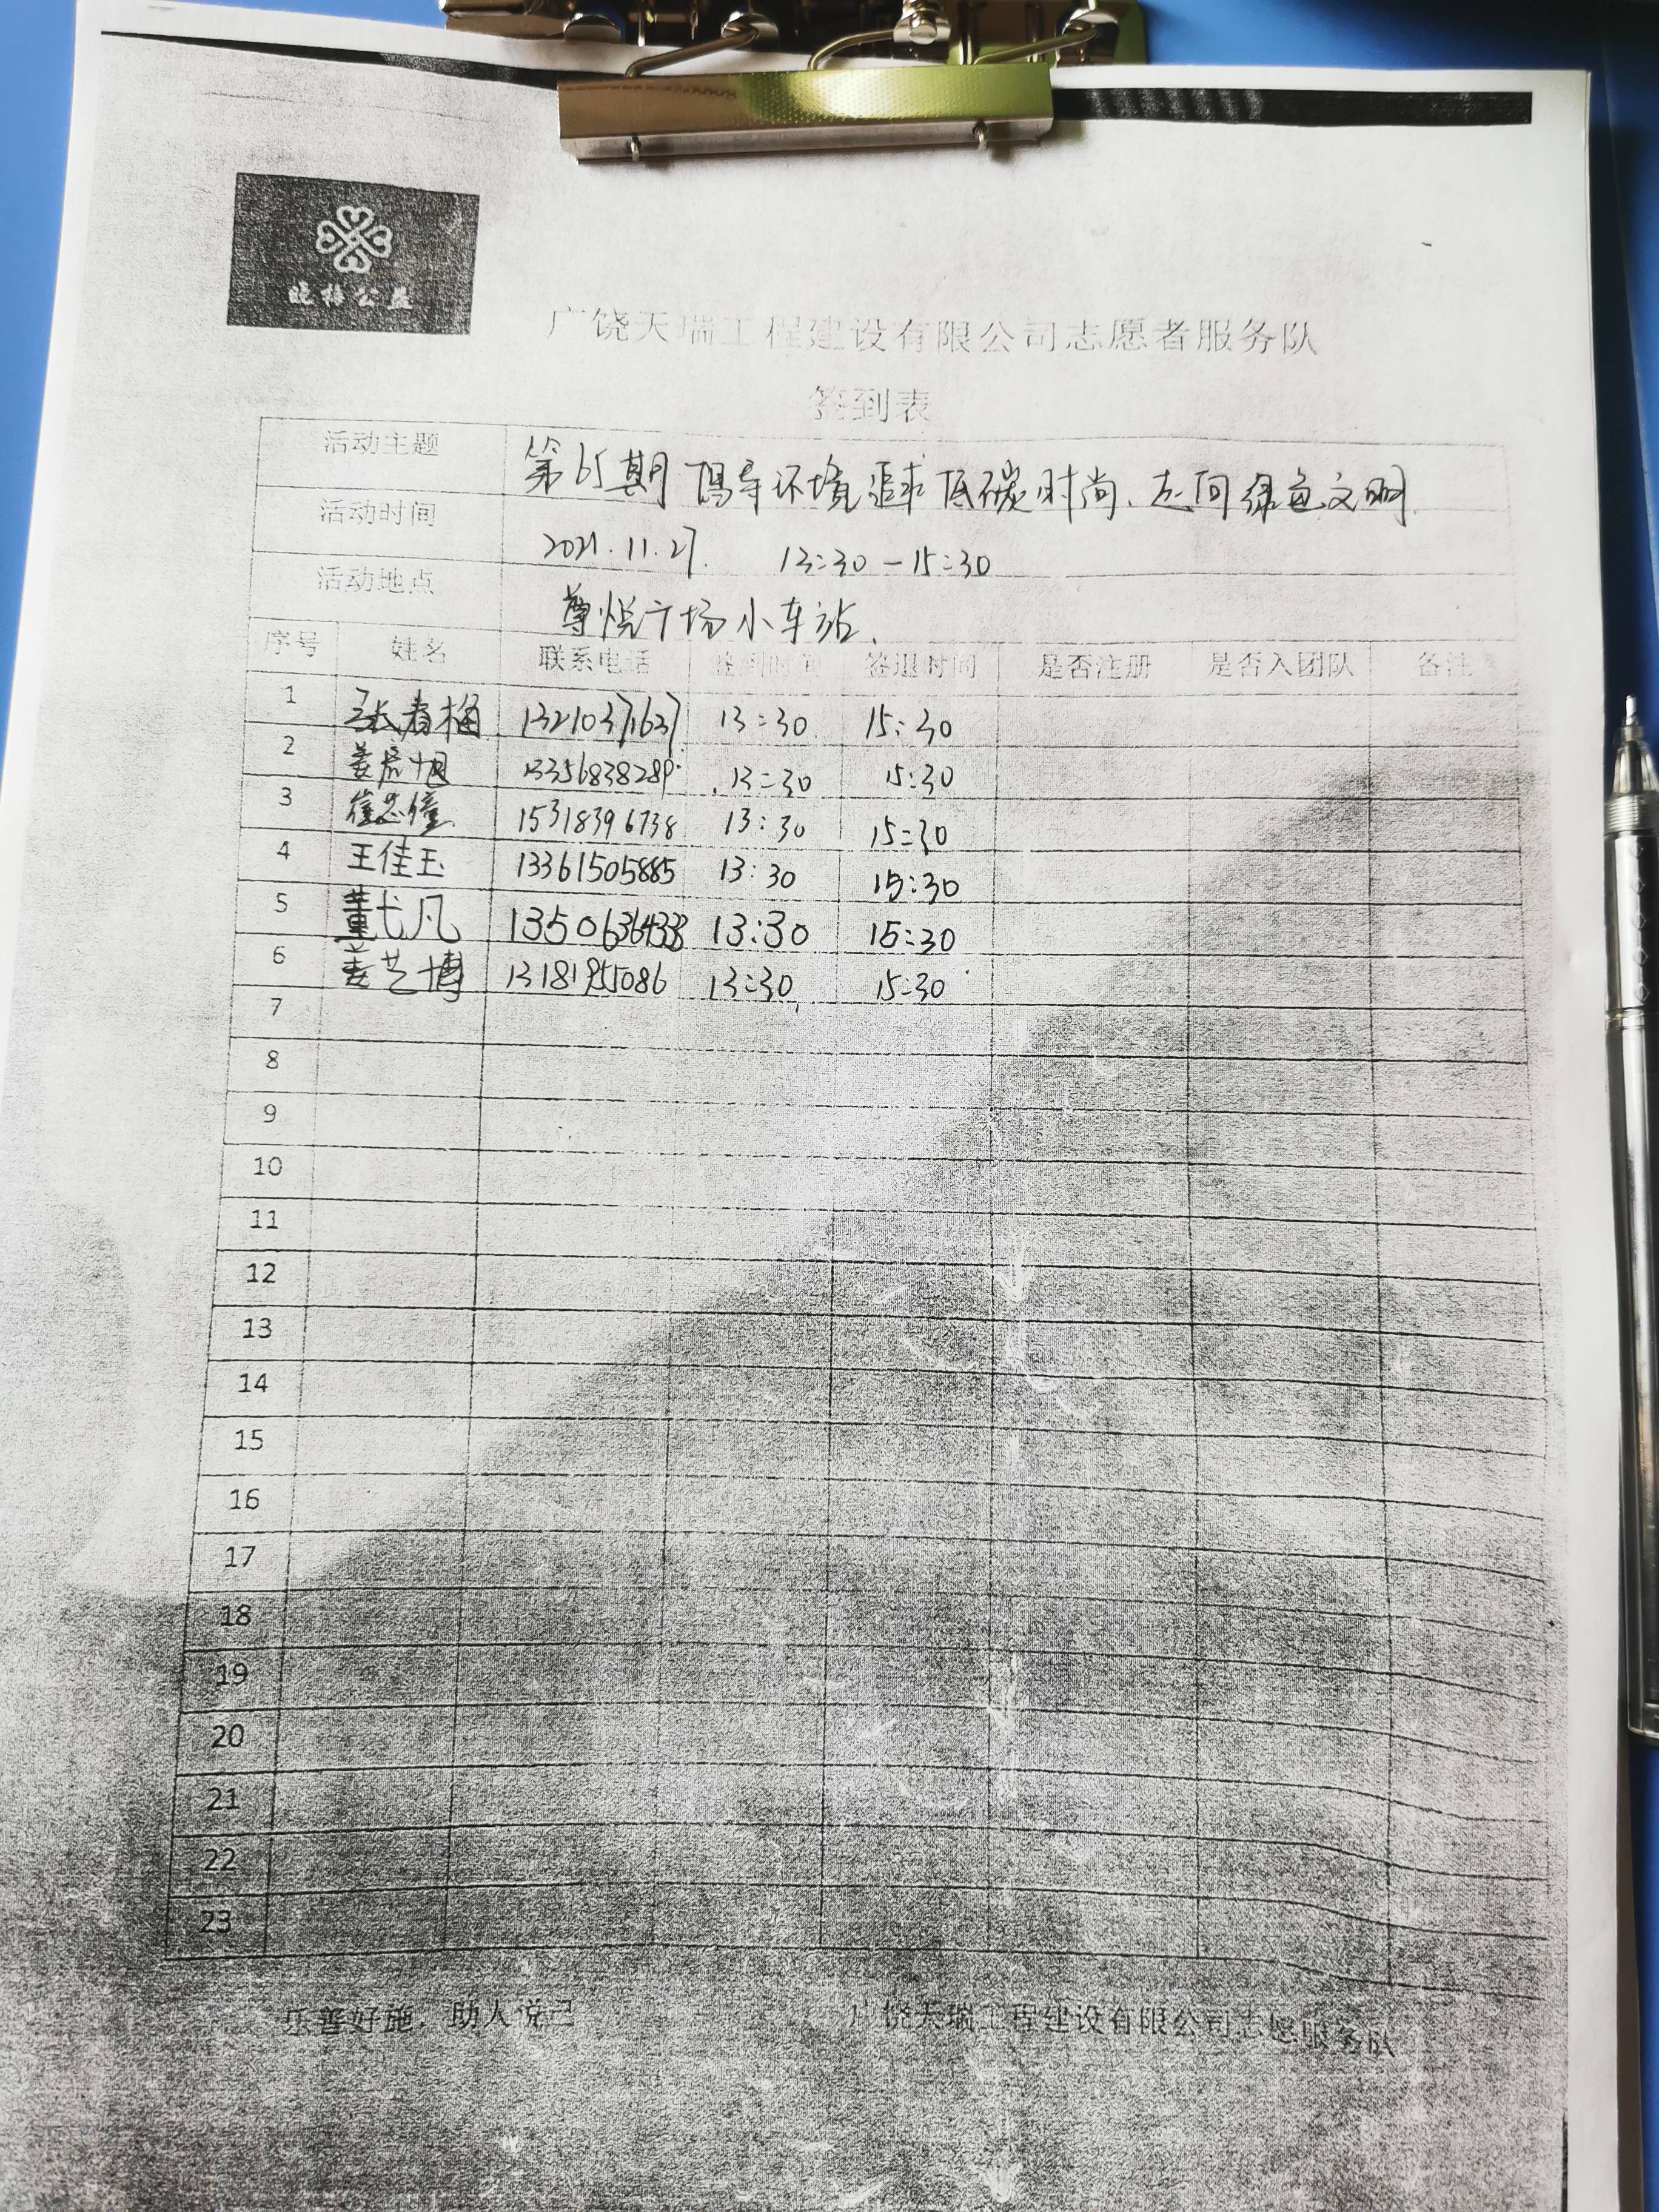 晓梅公益
广饶天瑞工程建设有限公司志愿者服务队
签到表
活动主题 第65期 倡导环境 追求低碳时尚、走向绿色文明.
活动时间 2021.11.27. 13:30-15:30
活动地点 尊悦广场小车站.
序号 姓名 联系电话 签到时间 签退时间 是否注册 是否入团队 备注
1 张春梅 13210371637 13:30 15:30
2 姜 旭 13356838289 13:30 15:30
3 崔 15318396738 13:30 15:30
4 王佳玉 13361505885 13:30 15:30
5 董弋凡 13506364333 13:30 15:30
6 姜艺博 13181955086 13:30 15:30
7
8
9
10
11
12
13
14
15
16
17
18
19
20
21
22
23
乐善好施，助人说己 广饶天瑞工程建设有限公司志愿服务队